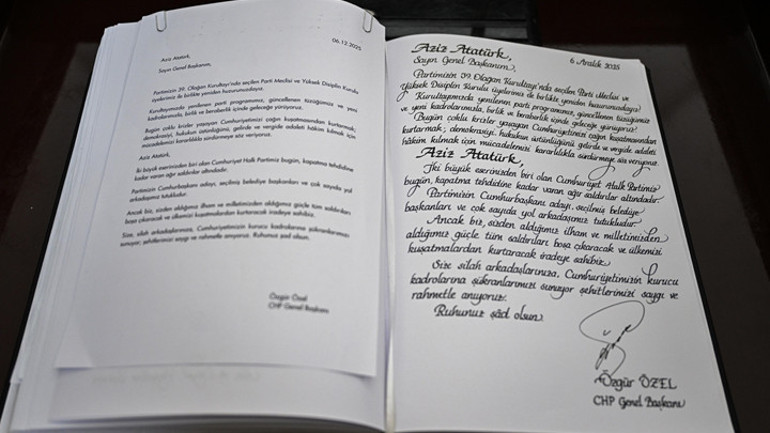 06.12.2025
Aziz Atatürk,
Sayın Genel Başkanım,
Partimizin 39. Olağan Kurultayı'nda seçilen Parti Meclisi ve Yüksek Disiplin Kurulu
üyelerimiz ile birlikte yeniden huzurunuzdayız.
Kurultayımızda yenilenen parti programımız, güncellenen tüzüğümüz ve yeni
kadrolarımızla, birlik ve beraberlik içinde geleceğe yürüyoruz.
Bugün çoklu krizler yaşayan Cumhuriyetimizi çağın kuşatmasından kurtarmak;
demokrasiyi, hukukun üstünlüğünü, gelirde ve vergide adaleti hâkim kılmak için
mücadelemizi kararlılıkla sürdürmeye söz veriyoruz.
Aziz Atatürk,
İki büyük eserinizden biri olan Cumhuriyet Halk Partimiz bugün, kapatma tehdidine
kadar varan ağır saldırılar altındadır.
Partimizin Cumhurbaşkanı adayı, seçilmiş belediye başkanları ve çok sayıda yol
arkadaşımız tutukludur.
Ancak biz, sizden aldığımız ilham ve milletimizden aldığımız güçle tüm saldırıları
boşa çıkaracak ve ülkemizi kuşatmalardan kurtaracak iradeye sahibiz.
Size, silah arkadaşlarınıza, Cumhuriyetimizin kurucu kadrolarına şükranlarımızı
sunuyor, şehitlerimizi saygı ve rahmetle anıyoruz. Ruhunuz şad olsun.
Özgür Özel
CHP Genel Başkanı
Aziz Atatürk, 6 Aralık 2025
Sayın Genel Başkanım,
Partimizin 39. Olağan Kurultayı'nda seçilen Parti Meclisi ve
Yüksek Disiplin Kurulu üyelerimiz ile birlikte yeniden huzurunuzdayız
Kurultayımızda yenilenen parti programımız, güncellenen tüzüğümüz
ve yeni kadrolarımızla, birlik ve beraberlik içinde geleceğe yürüyoruz
Bugün çoklu krizler yaşayan Cumhuriyetimizi çağın kuşatmasından
kurtarmak; demokrasiyi, hukukun üstünlüğünü gelirde ve vergide adaleti
hâkim kılmak için mücadelemizi kararlılıkla sürdürmeye söz veriyoruz.
Aziz Atatürk,
İki büyük eserinizden biri olan Cumhuriyet Halk Partimiz
bugün, kapatma tehdidine kadar varan ağır saldırılar altındadır.
Partimizin Cumhurbaşkanı adayı, seçilmiş belediye
başkanları ve çok sayıda yol arkadaşımız tutukludur.
Ancak biz, sizden aldığımız ilham ve milletimizden
aldığımız güçle tüm saldırıları boşa çıkaracak ve ülkemizi
kuşatmalardan kurtaracak iradeye sahibiz
Size silah arkadaşlarınıza, Cumhuriyetimizin kurucu
kadrolarına şükranlarımızı sunuyor şehitlerimizi saygı ve
rahmetle anıyoruz.
Ruhunuz şâd olsun
Özgür ÖZEL
CHP Genel Başkanı